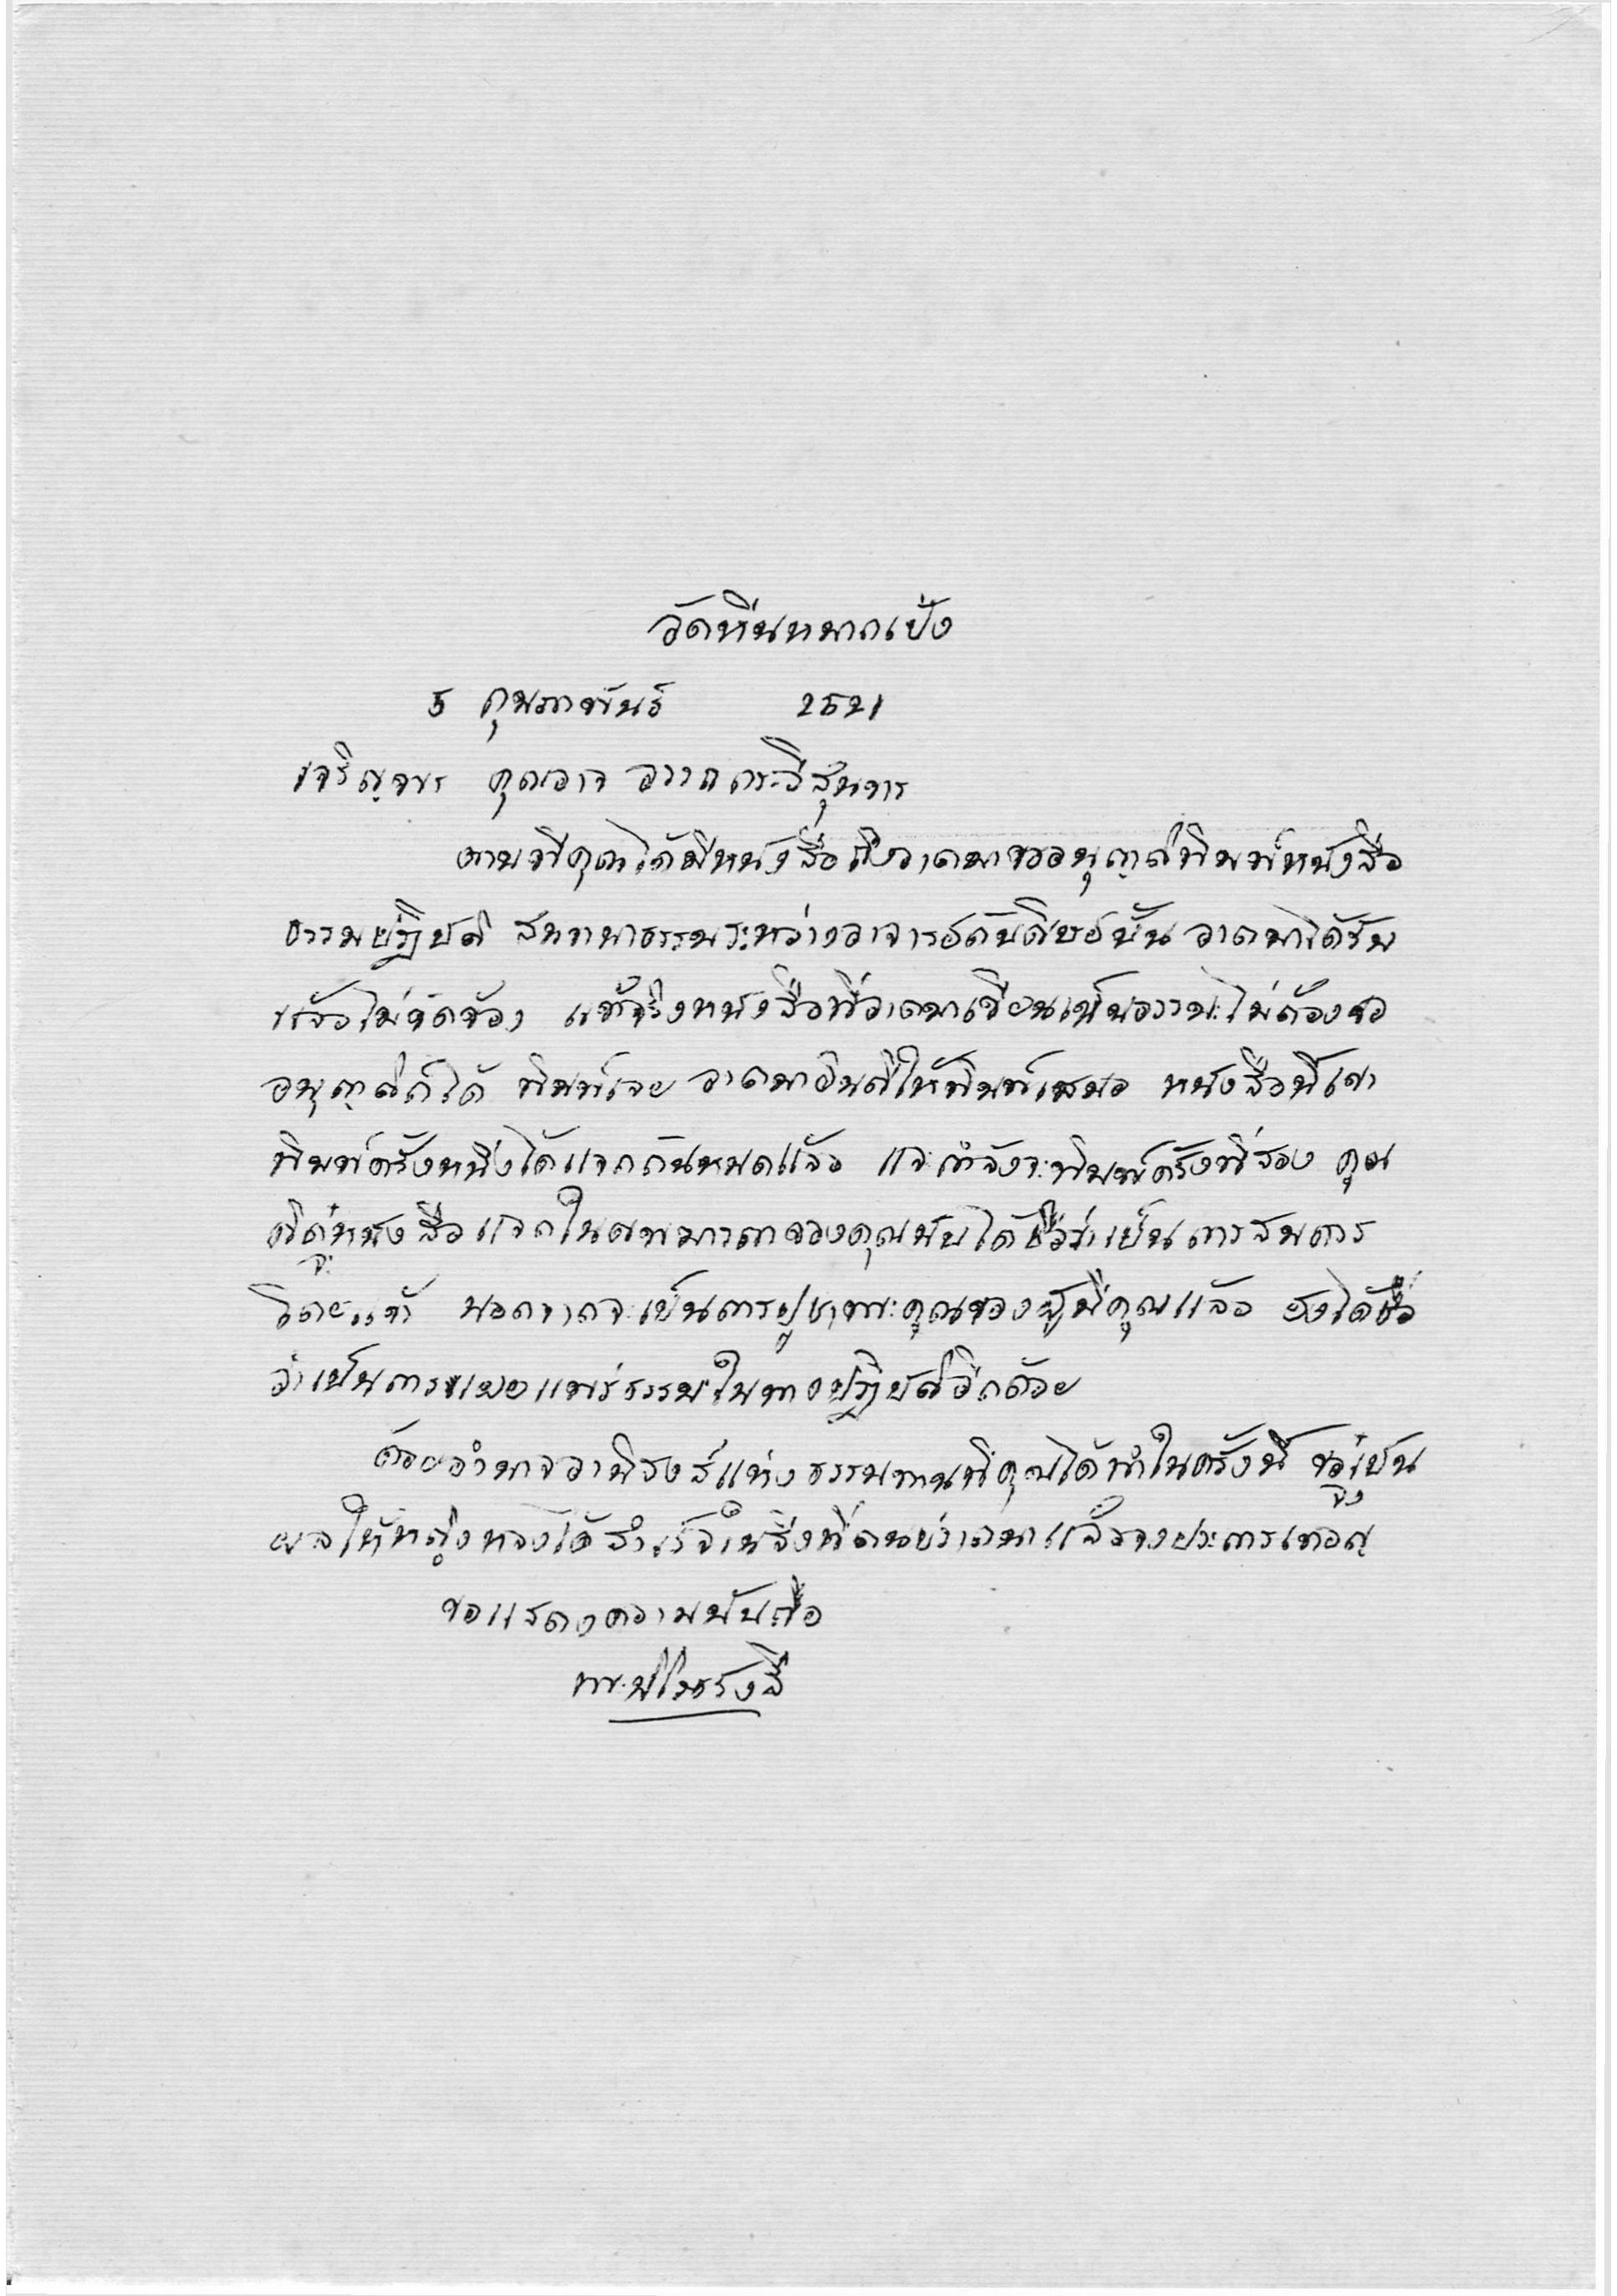 วัดหินหมากเป้ง
5 กุมภาพันธ์ 2521
เจริญพร คุณอาจ
ตามที่คุณได้มีหนังสือถึงอาตมาขออนุญาตพิมพ์หนังสือ
ธรรมปฏิบัติ สนทนาธรรมระหว่างอาจารย์กับศิษย์นั้น อาตมาได้รับ
แล้วไม่ขัดข้อง แท้จริงหนังสือที่อาตมาเขียนเป็นธรรมะไม่ต้องขอ
อนุญาตก็ได้ พิมพ์เลย อาตมายินดีให้พิมพ์เสมอ หนังสือนี้เขา
พิมพ์ครั้งหนึ่งได้แจกกันหมดแล้ว และกำลังจะพิมพ์ครั้งที่สอง คุณ
หนังสือแจกในของคุณนับได้ชื่อว่าเป็นการสมควร
โดยแท้ นอกจากจะเป็นการบูชาพระคุณของผู้มีคุณแล้ว ยังได้ชื่อ
ว่าเป็นการเผยแพร่ธรรมในทางปฏิบัติอีกด้วย
ด้วยอำนาจอานิสงส์แห่งธรรมทานที่คุณได้ทำในครั้งนี้ ขอจงเป็น
ผลให้ได้สำเร็จในสิ่งที่ตนปรารถนาแล้วจงประการเทอญ
ขอแสดงความนับถือ
พระนิโรธรังสี